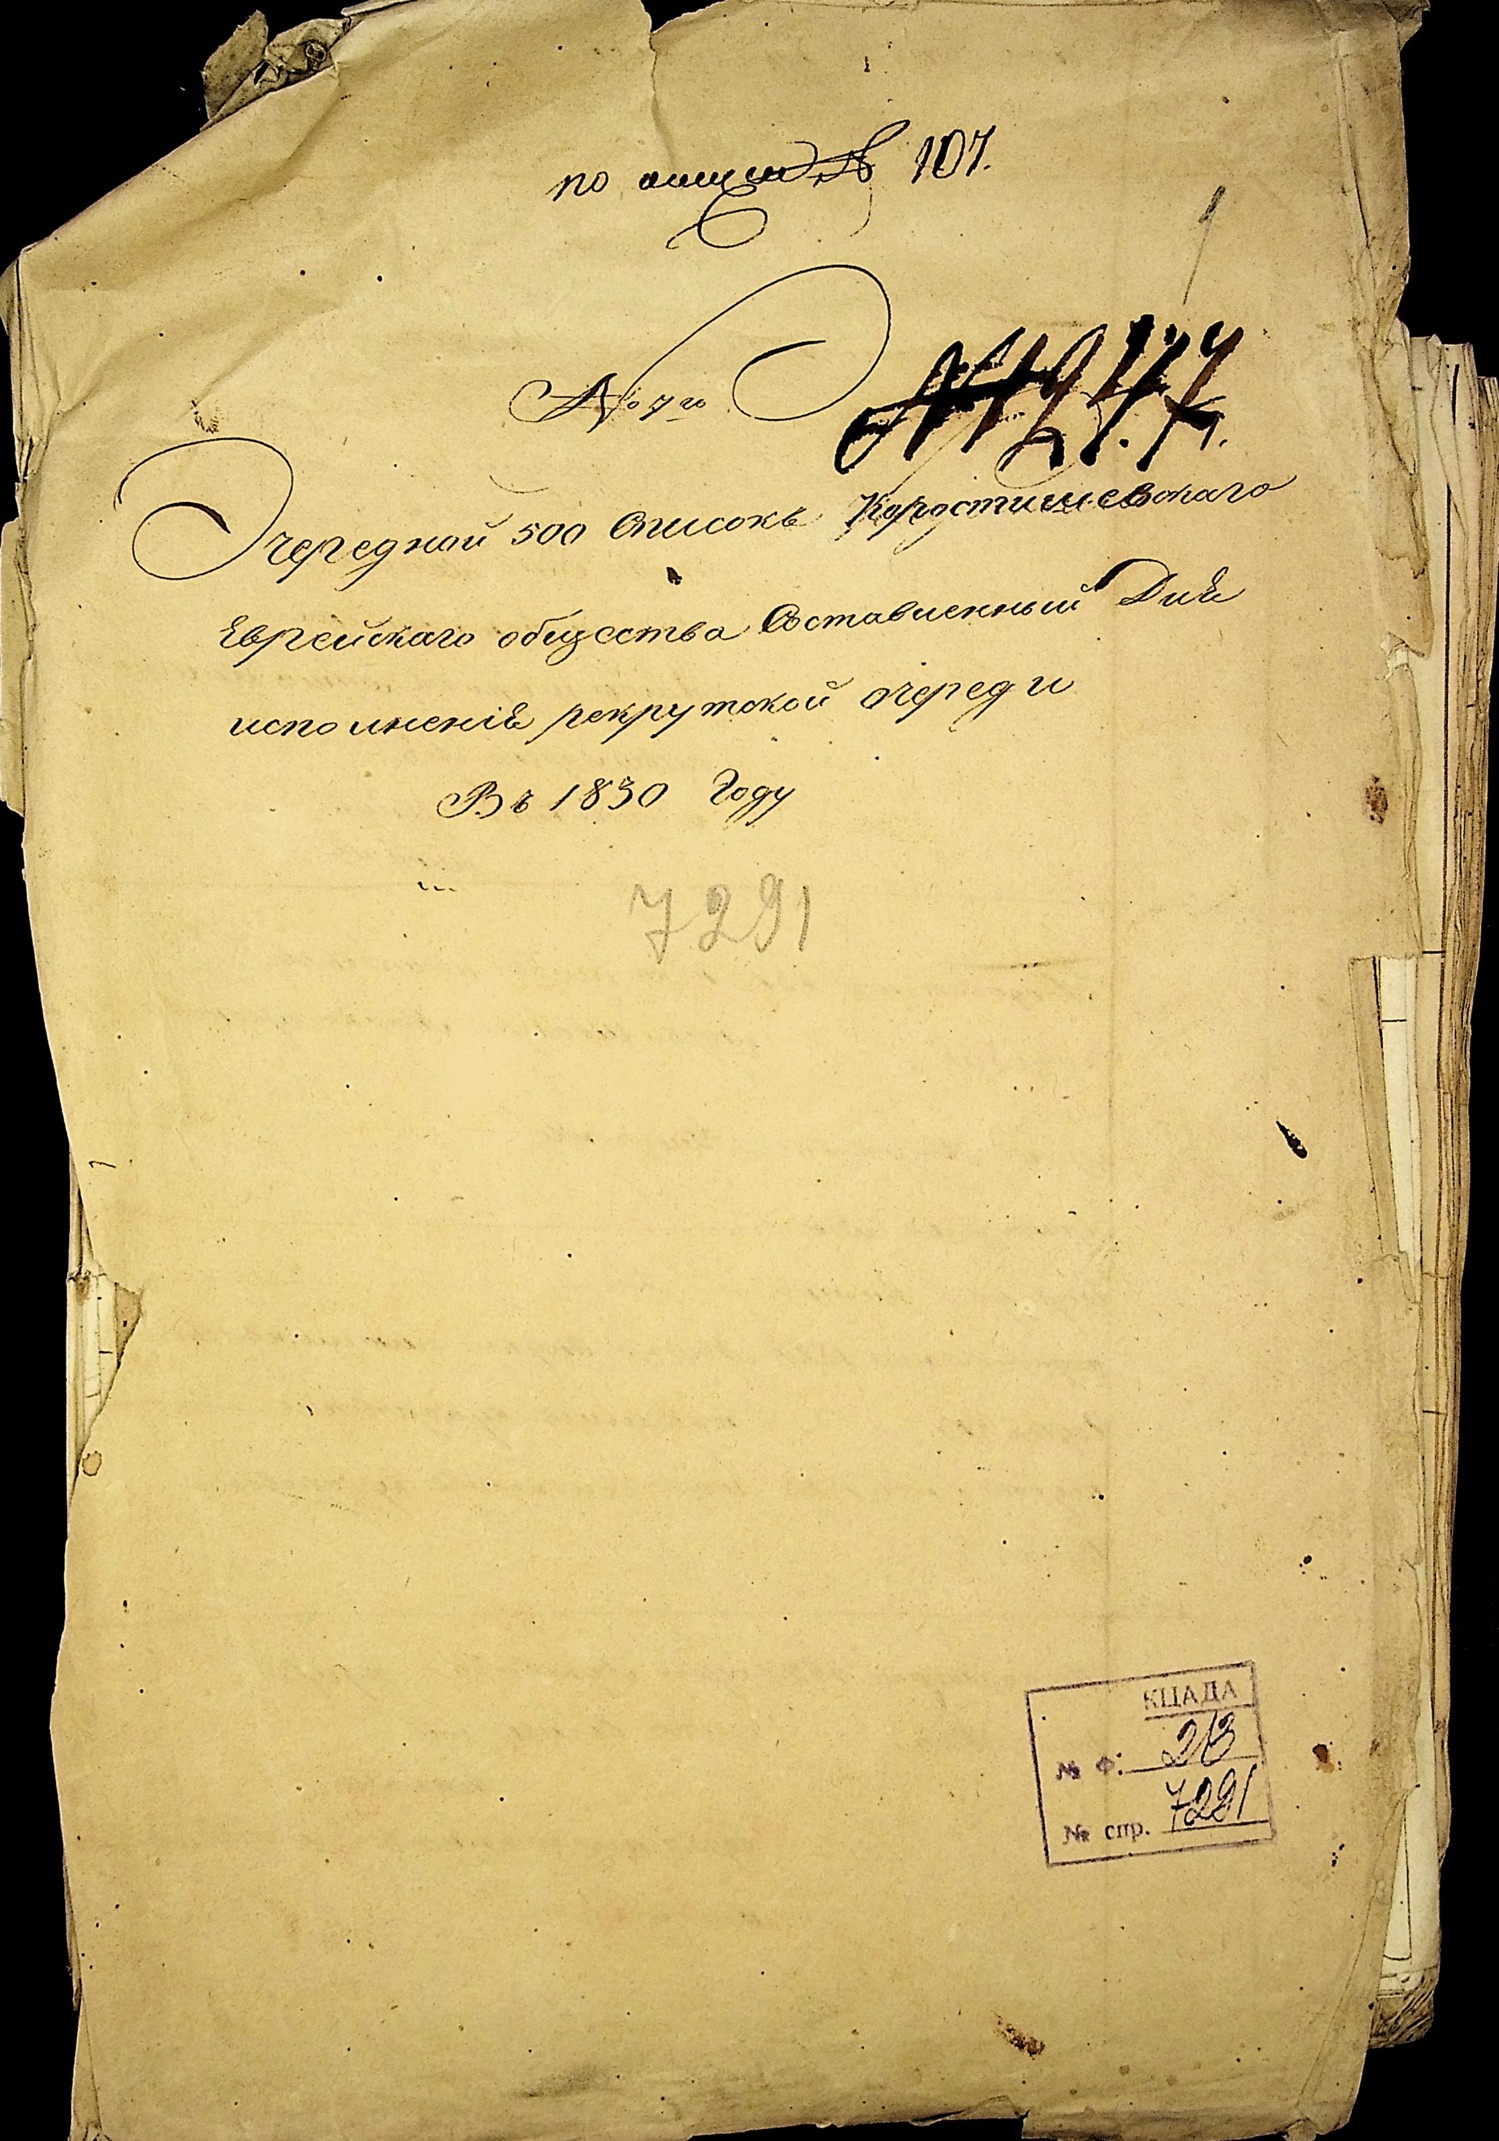 по описи № 107.
№ 7го
Очередной 500 Списокъ Коростишевскаго
Еврейскаго общества Составленный Для
исполненія рекрутской очереди
Въ 1830 Году
7291
КЦАДА
№ ф. 213
№ спр. 7291